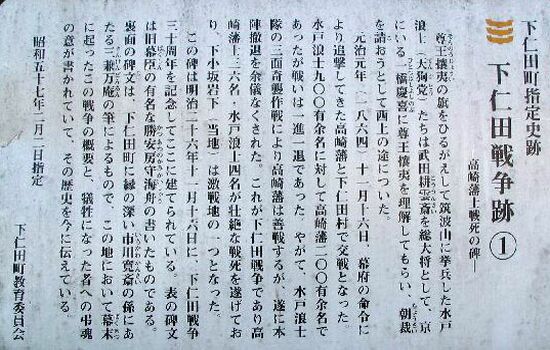 下仁田町指定史跡
下仁田戦争跡①
―高崎藩士戦死の碑―
尊王攘夷の旗をひるがえして筑波山に挙兵した水戸
浪士(天狗党)たちは武田耕雲斎を総大将として、京
にいる一橋慶喜に尊王攘夷を理解してもらい、朝裁
を請おうとして西上の途についた。
元治元年(一八六四)十一月十六日、幕府の命令に
より追撃してきた高崎藩と下仁田村で交戦となった。
水戸浪士九〇〇有余名に対して高崎藩二〇〇有余名で
あったが戦いは一進一退であった。やがて、水戸浪士
隊の三面奇襲作戦により高崎藩は善戦するが、遂に本
陣撤退を余儀なくされた。これが下仁田戦争であり高
崎藩士三六名・水戸浪士四名が壮絶な戦死を遂げてお
り、下小坂岩下(当地)は激戦地の一つとなった。
この碑は明治二十六年十一月十六日に、下仁田戦争
三十周年を記念してここに建てられている。表の碑文
は旧幕臣の有名な勝安房守海舟の書いたものである。
裏面の碑文は、下仁田町に縁の深い市川寛斎の孫にあ
たる三兼万庵の筆によるもので、この地において幕末
に起ったこの戦争の概要と、犠牲になった者への弔魂
の意が書かれていて、その歴史を今に伝えている。
昭和五十七年二月二日指定
下仁田町教育委員会